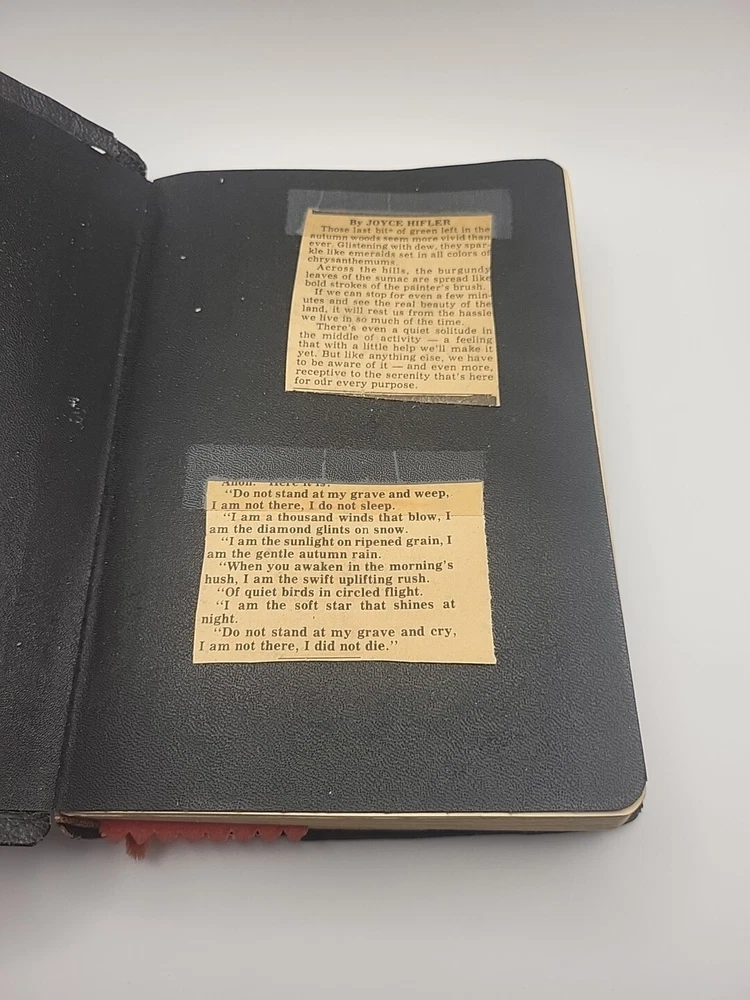 By JOYCE HIFLER
Those last bits of green left in the
autumn woods seem more vivid than
ever. Glistening with dew, they spar-
kle like emeralds set in all colors of
chrysanthemums.
Across the hills, the burgundy
leaves of the sumac are spread like
bold strokes of the painter's brush.
If we can stop for even a few min-
utes and see the real beauty of the
land, it will rest us from the hassle
we live in so much of the time.
There's even a quiet solitude in
the middle of activity — a feeling
that with a little help we'll make it
yet. But like anything else, we have
to be aware of it — and even more,
receptive to the serenity that's here
for our every purpose.
Anon. Here it is:
"Do not stand at my grave and weep,
I am not there, I do not sleep.
"I am a thousand winds that blow, I
am the diamond glints on snow.
"I am the sunlight on ripened grain, I
am the gentle autumn rain.
"When you awaken in the morning's
hush, I am the swift uplifting rush.
"Of quiet birds in circled flight.
"I am the soft star that shines at
night.
"Do not stand at my grave and cry,
I am not there, I did not die."